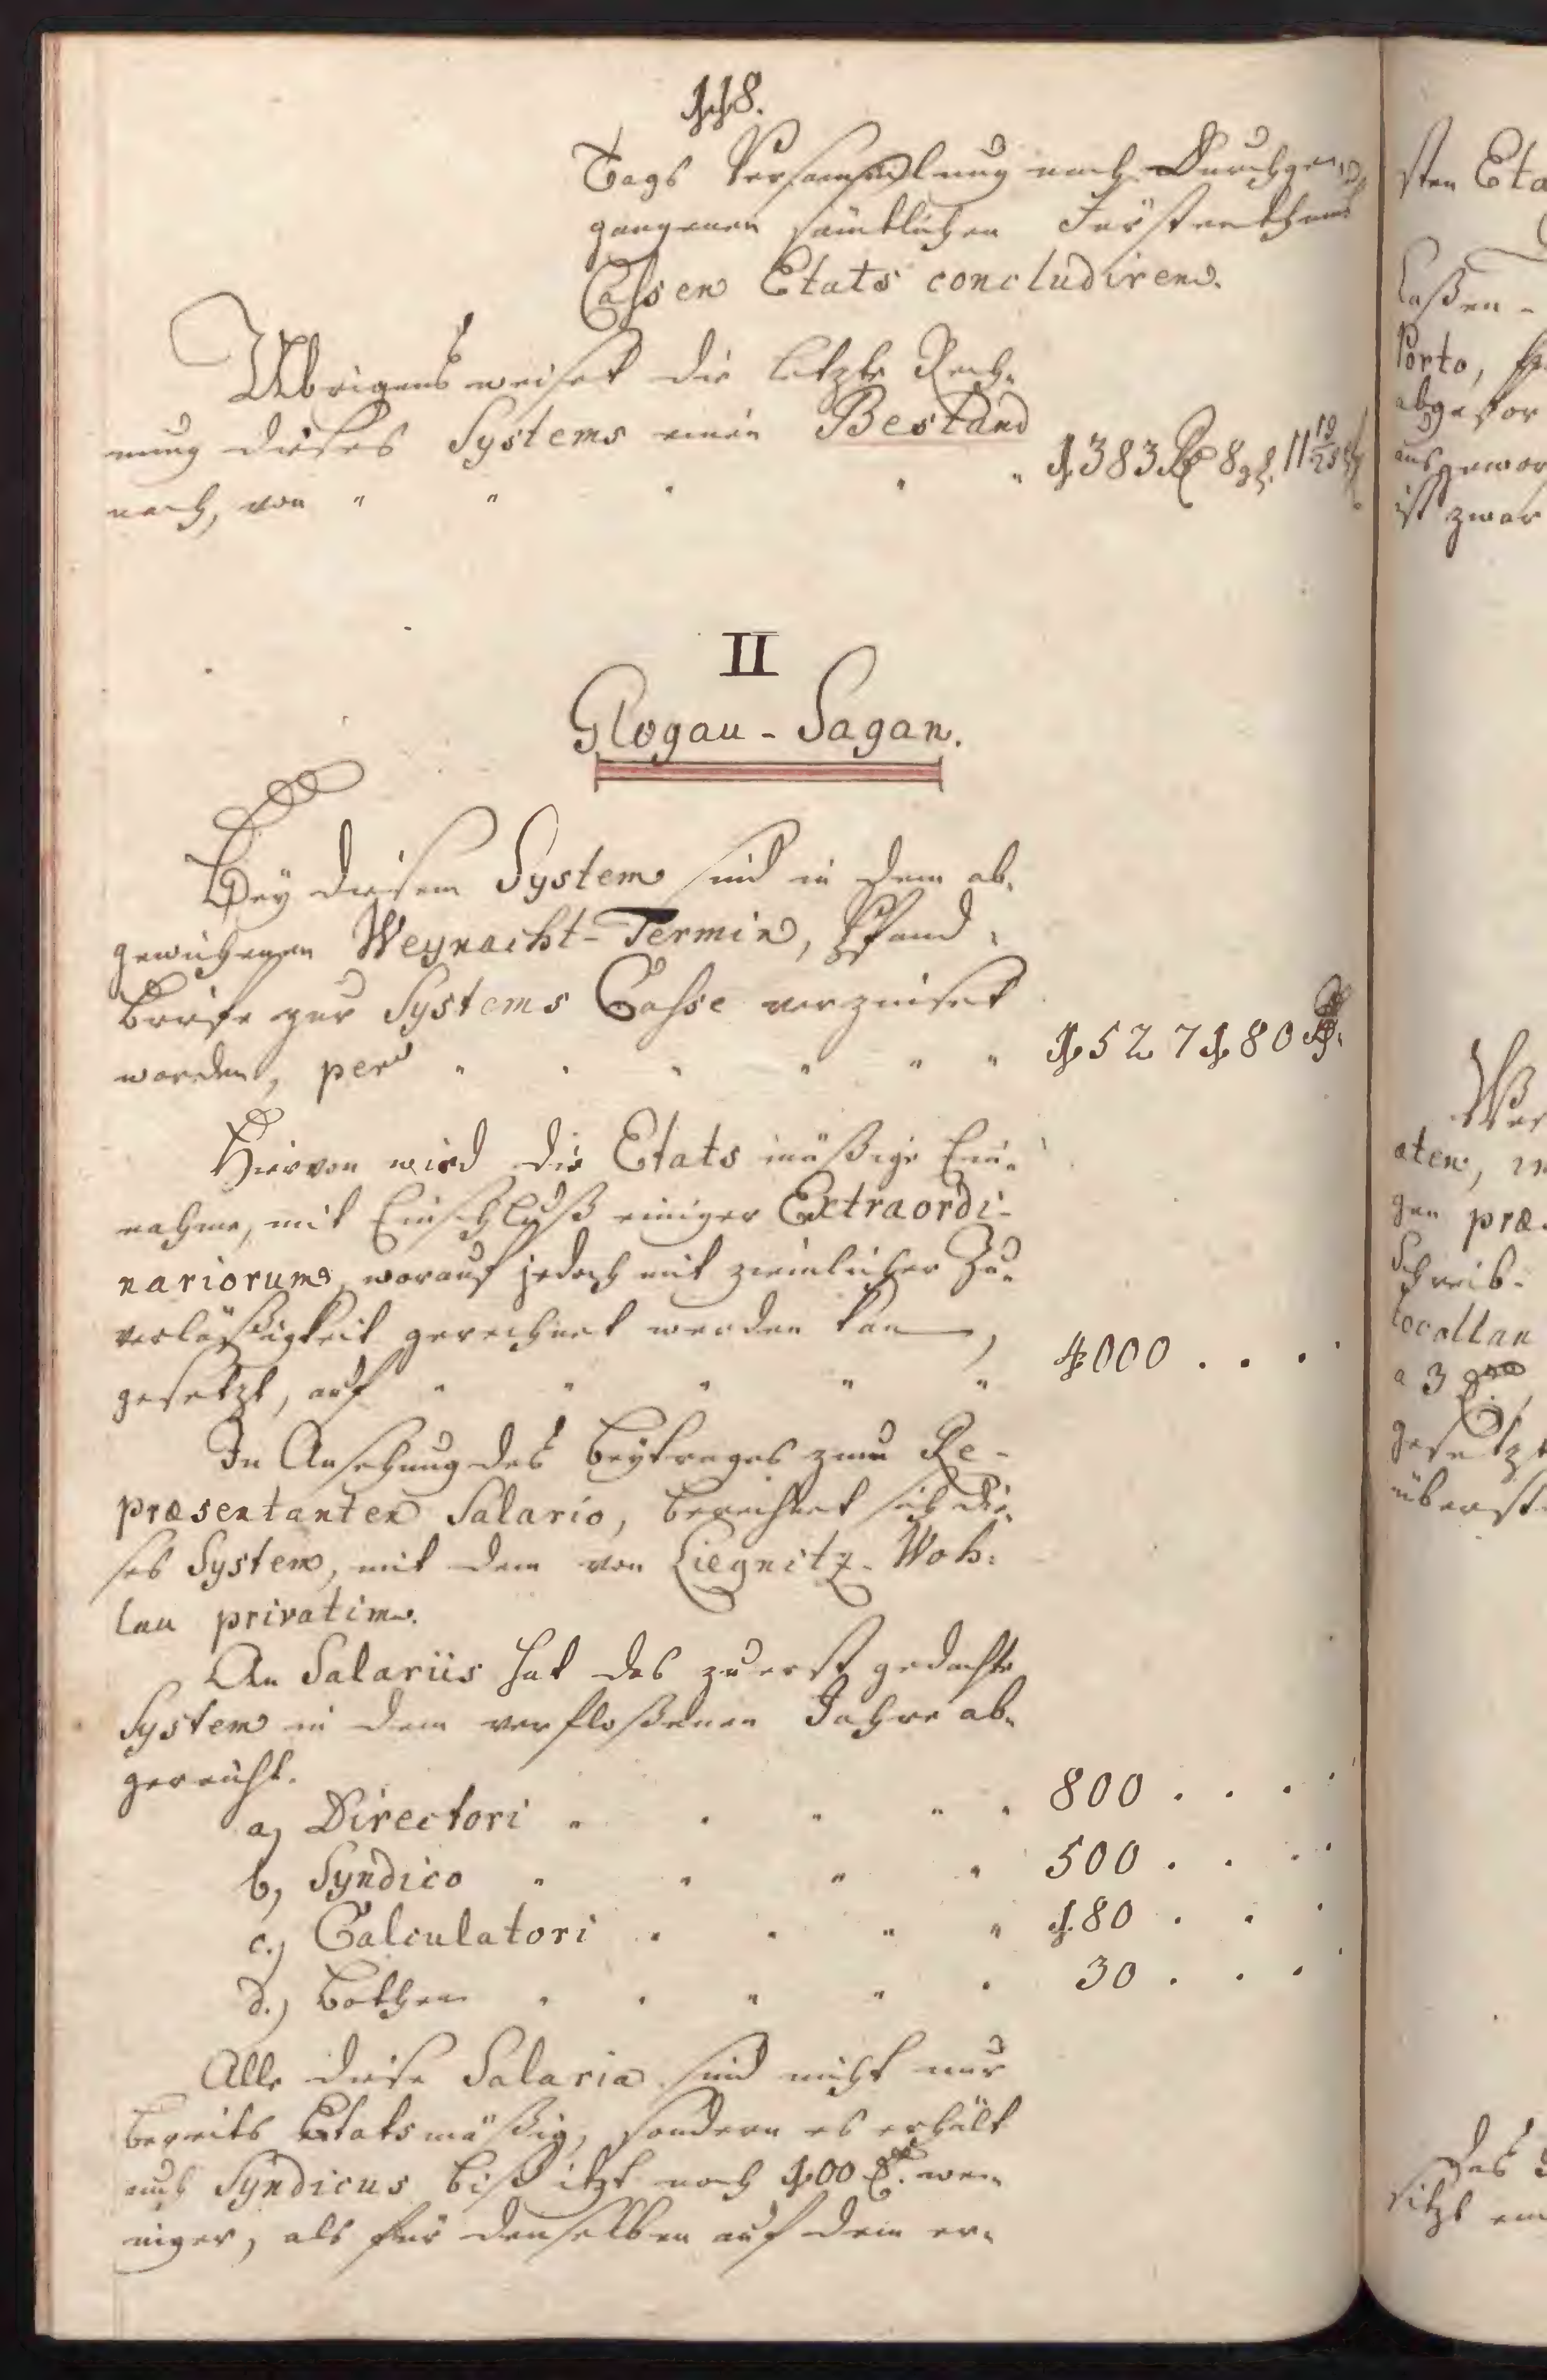 118.
Tags Versammlung nach Durchge-
gangenen sämtlichen Fürstenthums
Cassen Etats concludiren.
Übrigens weiset die letzte Rech-
nung dieses Systems einen Bestand
nach, von " " " " " 1383 Rt 8 gl. 11 19/25
II
Glogau - Sagan.
Bey diesem System sind in dem ab-
gewichenen Weynacht-Termin, Pfand-
Briefe zur Systems Casse verzinset
worden, per " " " " " " 1527180 Rt.
Hiervon wird die Etats mäßige Ein-
nahme, mit Einschluß einiger Extraordi-
nariorum, worauf jedoch mit ziemlicher Zu-
verläßigkeit gerechnet werden kan,
gesetzt, auf " " " " " 4000 . . . .
In Ansehung des Beytrages zum Re-
præsentanten Salario, berechnet sich die-
ses System, mit dem von Liegnitz-Woh-
lau privatim.
An Salariis hat das zuerst gedachte
System in dem verfloßenen Jahre ab-
gereicht.
a, Directori " " " " " 800 . . . .
b, Syndico " " " " 500 . . . .
c.) Calculatori " " " " 180 . . .
d.) Bothen " " " " " 30 . . . .
Alle diese Salaria sind nicht nur
bereits Etatsmäßig, sondern es erhält
auch Syndicus biß itzt noch 100 Rt. we-
niger, als für denselben auf dem er-
sten Eta
Caßen -
Porto,
abgefor
ausgewor
ist zwar
aten,
gen præ-
Schreib-
locollan
a 3
gesetzt
überst
Das
sitzt